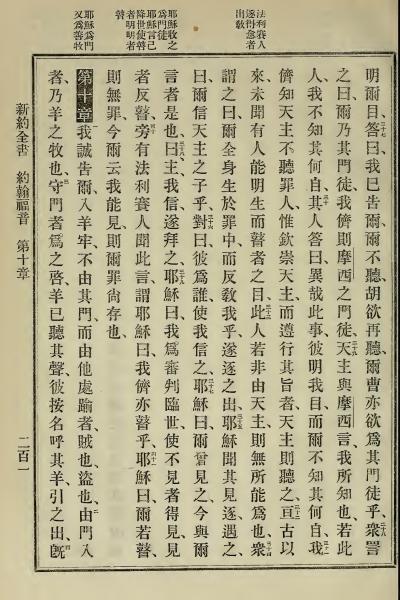 法利賽人
逐得愈者
出教
耶穌牧之
爲門徒
耶穌言己
降世使瞽
者明明者
瞽
耶穌爲門
又爲善牧
明爾目、二十七答曰、我已告爾、爾不聽、胡欲再聽、爾曹亦欲爲其門徒乎、二十八衆詈
之曰、爾乃其門徒、我儕則摩西之門徒、二十九天主與摩西言、我所知也、若此
人、我不知其何自、三十其人答曰、異哉此事、彼明我目、而爾不知其何自、三十一我
儕知天主不聽罪人、惟欽崇天主、而遵行其旨者、天主則聽之、三十二亘古以
來、未聞有人能明生而瞽者之目、三十三此人若非由天主、則無所能爲也、三十四衆
謂之曰、爾全身生於罪中、而反敎我乎、遂逐之出、三十五耶穌聞其見逐、遇之
曰、爾信天主之子乎、三十六對曰、彼爲誰、使我信之、三十七耶穌曰、爾曾見之、今與爾
言者是也、三十八曰、主、我信、遂拜之、三十九耶穌曰、我爲審判臨世、使不見者得見、見
者反瞽、四十旁有法利賽人聞此言、謂耶穌曰、我儕亦瞽乎、四十一耶穌曰、爾若瞽、
則無罪、今爾云我能見、則爾罪尙存也、
第十章 我誠告爾、入羊牢不由其門、而由他處踰者、賊也、盜也、二由門入
者、乃羊之牧也、三守門者爲之啓、羊已聽其聲、彼按名呼其羊、引之出、四旣
新約全書 約翰福音 第十章 二百一